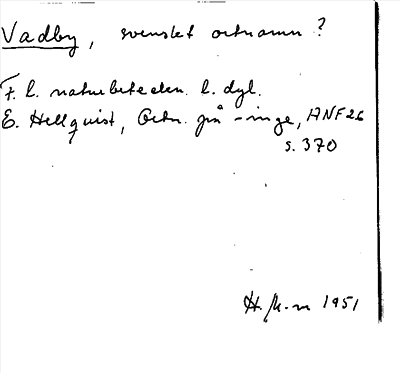 Vadby, svenskt ortnamn?
F. l. naturbeteckn. l. dyl.
E. Hellquist, Ortn. på -inge, ANF 26
s. 370
1951